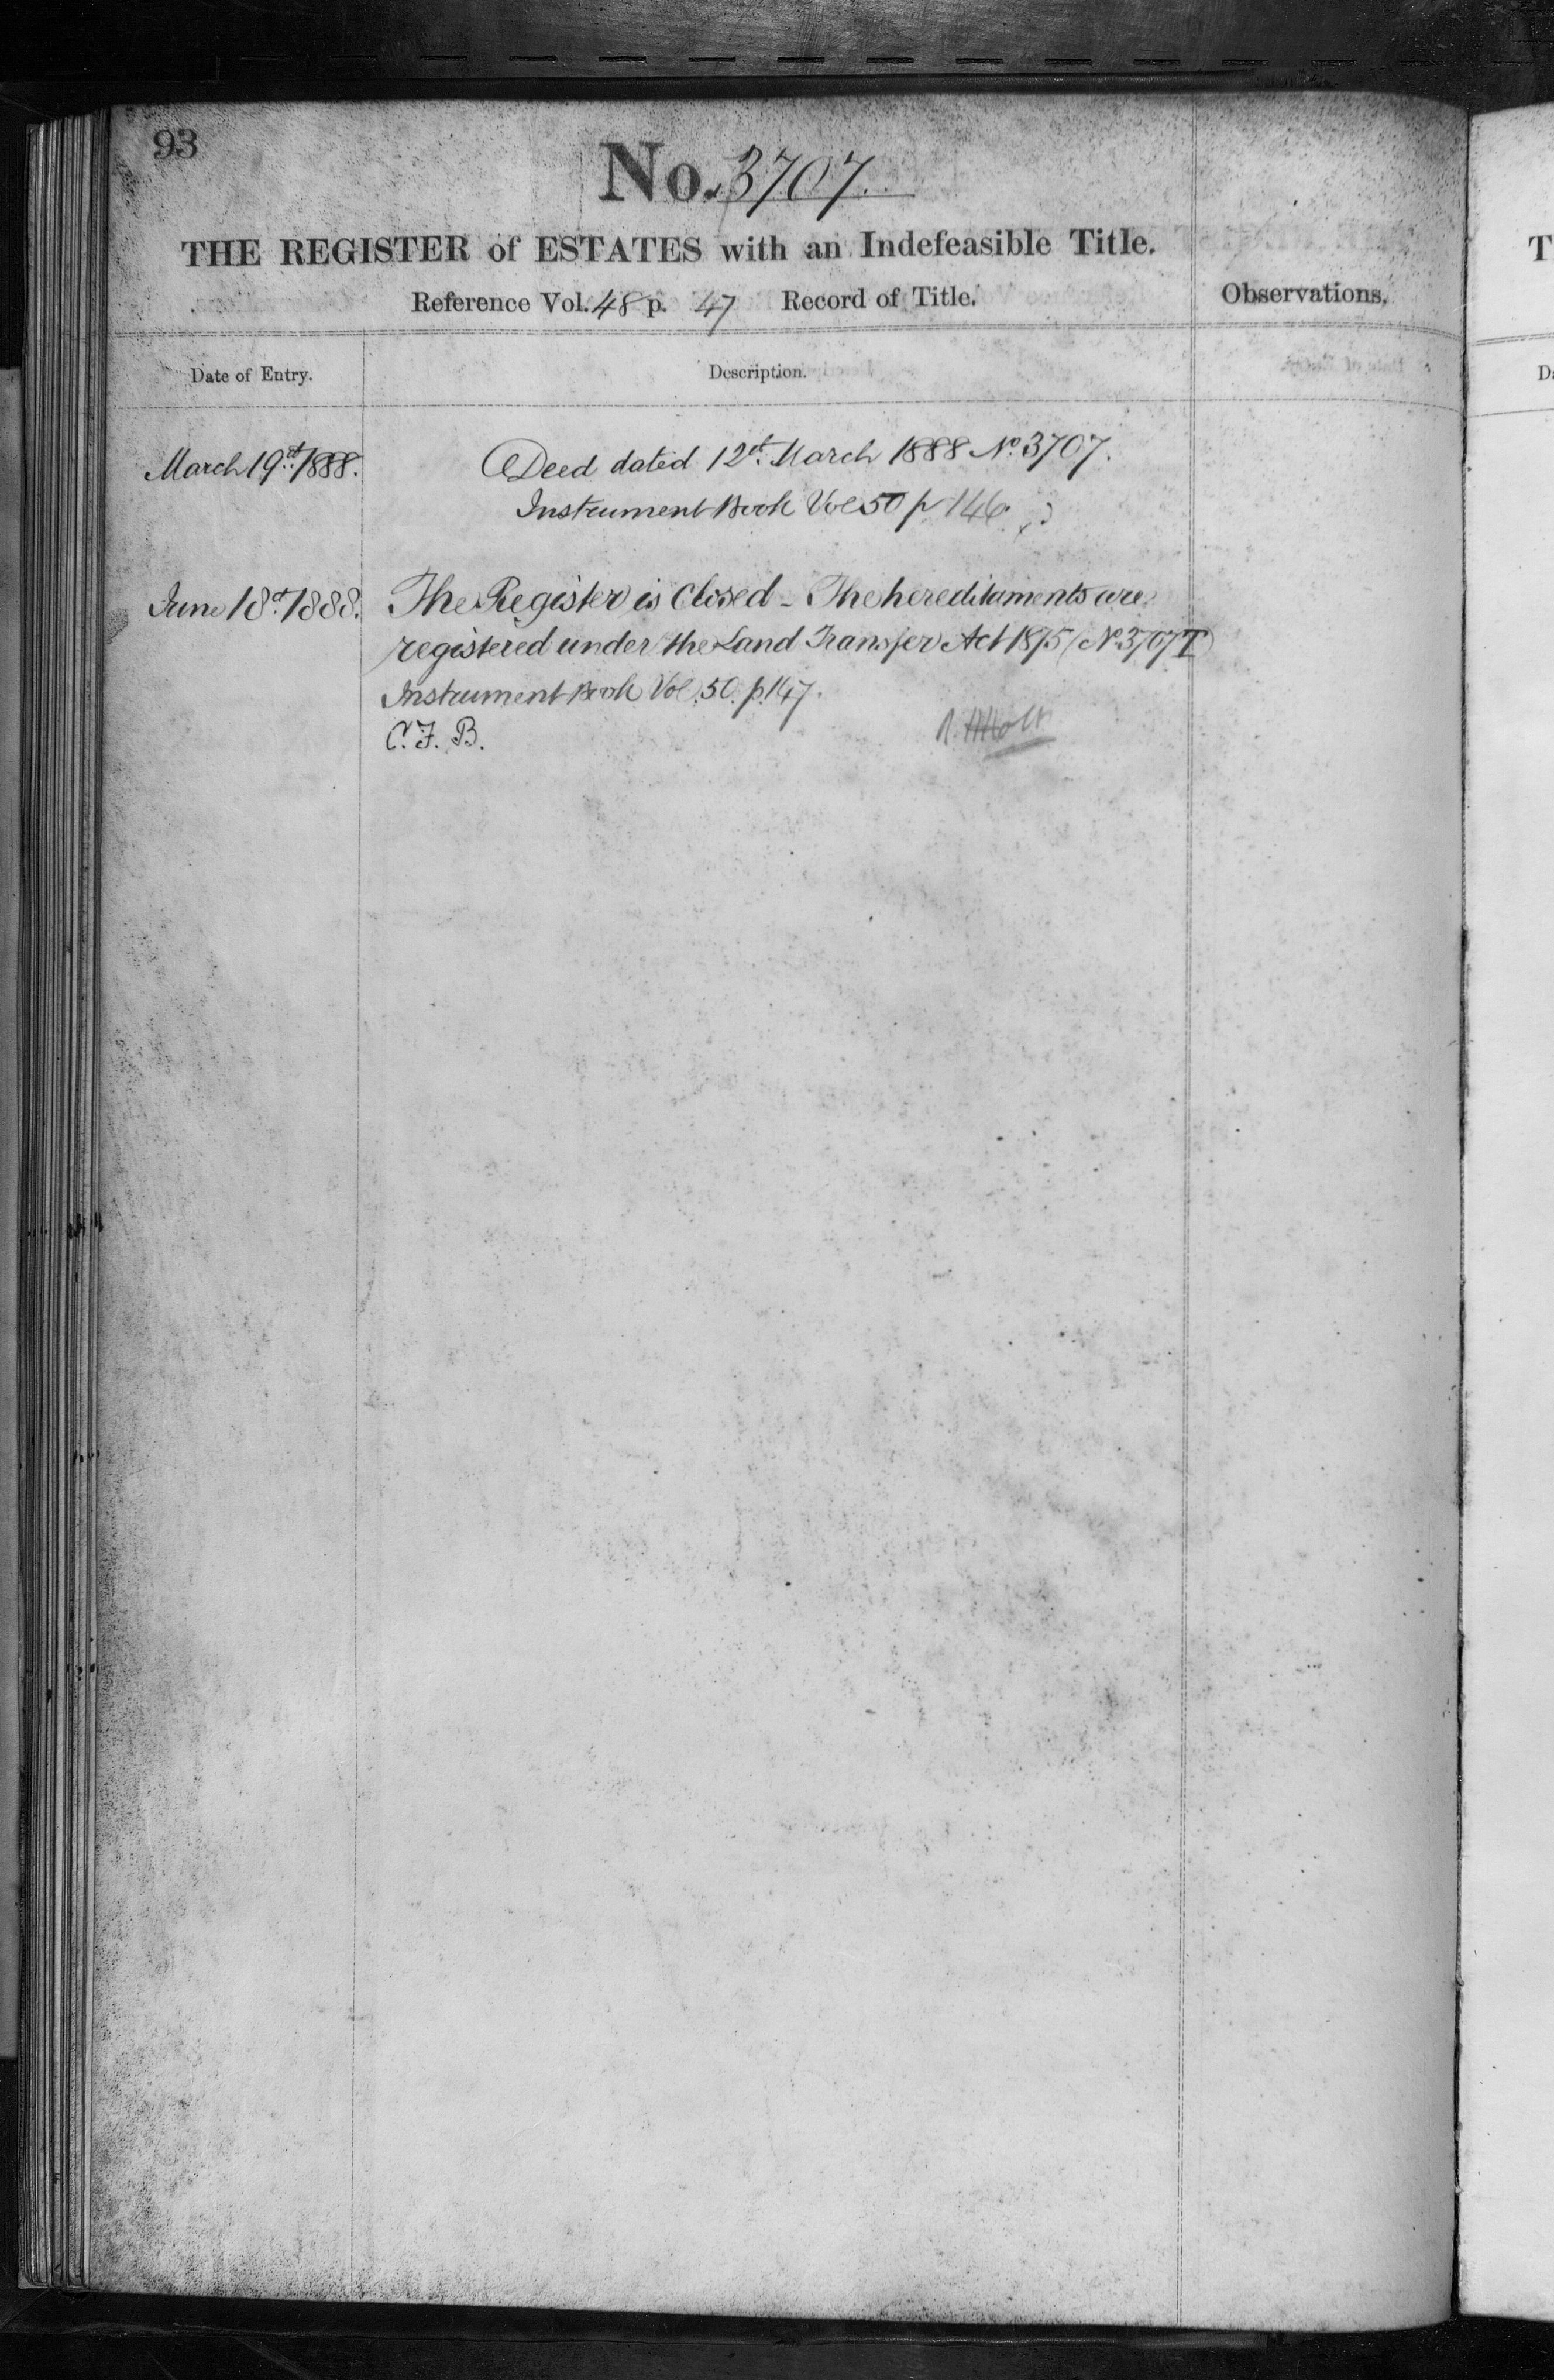 93
No. 3707.
THE REGISTER of ESTATES with an Indefeasible Title.
Reference Vol. 48 p. 47 Record of Title.
Observations.
Date of Entry.
Description.
March 19th 1888.
Deed dated 12th March 1888 No. 3707.
Instrument Book Vol 50 p 146
June 18th 1888.
The Register is Closed - The hereditaments are
registered under the Land Transfer Act 1875 (No. 3707T)
Instrument Book Vol. 50. p. 147.
C. F. B.
T
Da